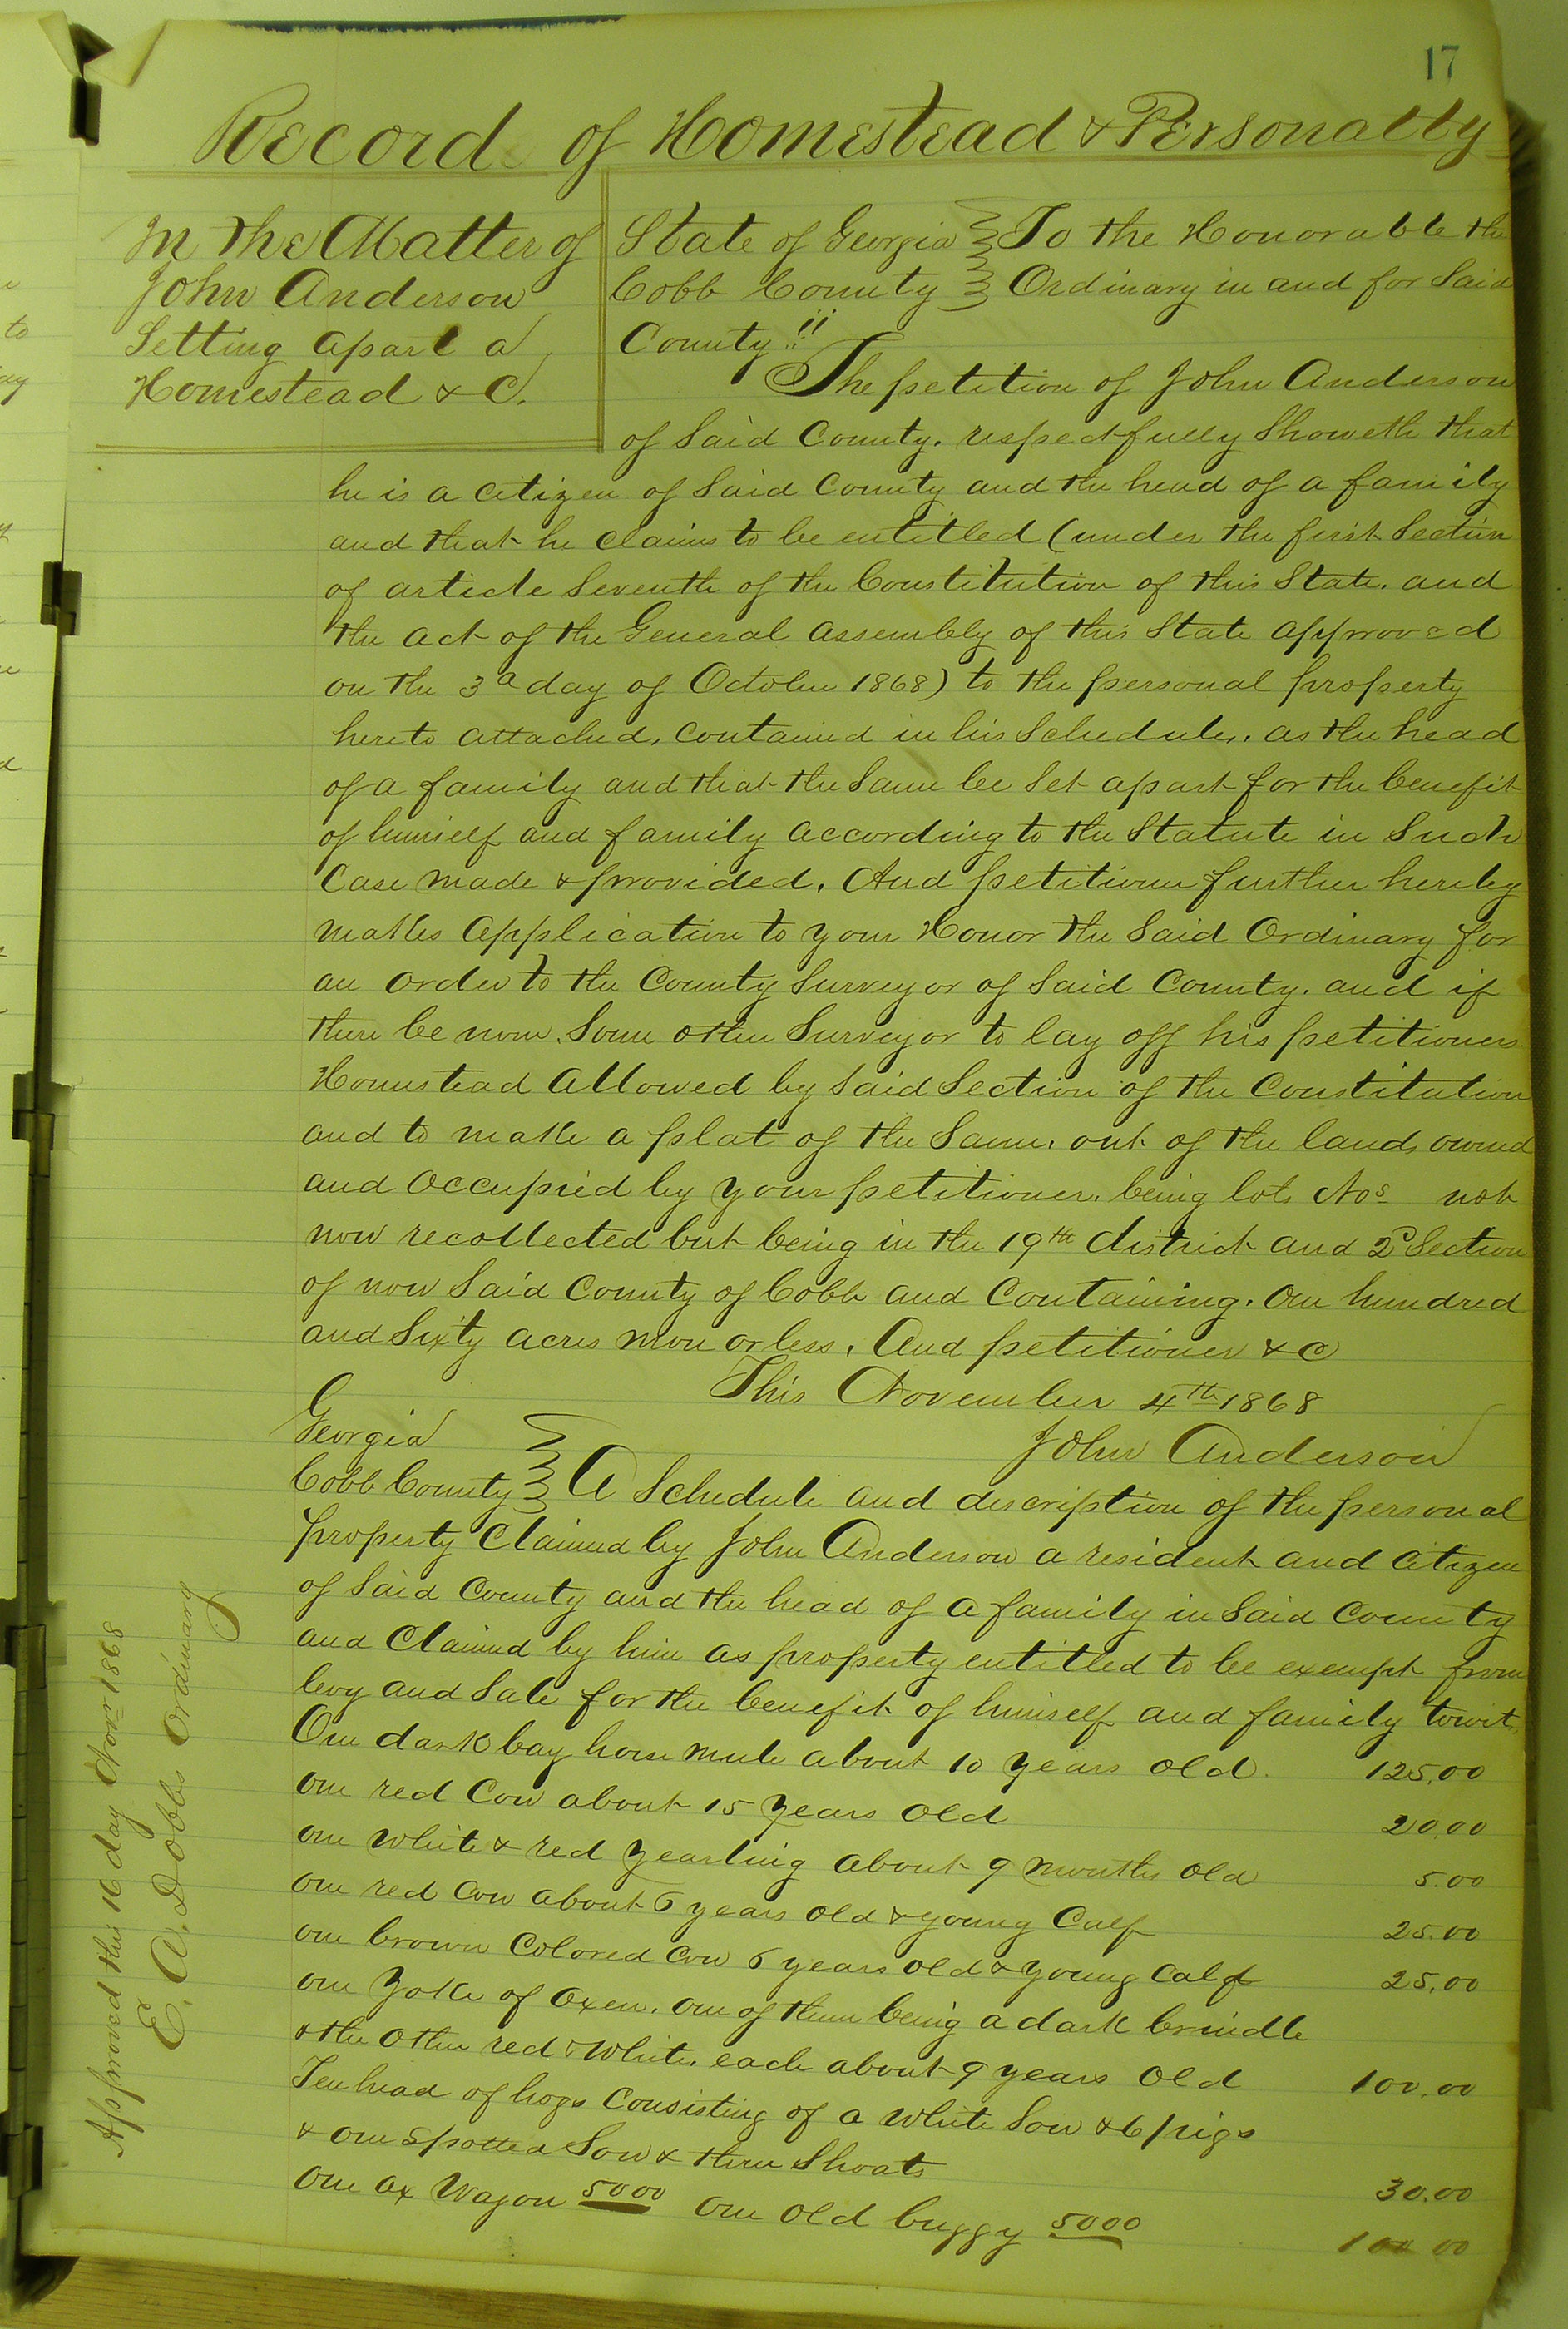 17
Record of Homestead & Personalty
In the Matter of
John Anderson
Setting apart a
Homestead & C.
State of Georgia To the Honorable the
Cobb County Ordinary in and for Said
County!!
The petition of John Anderson
of Said County. respectfully Showeth that
he is a citizen of Said County and the head of a family
and that he claims to be entitled (under the first Section
of article Seventh of the Constitution of this State. and
the act of the General assembly of this State approved
on the 3d day of October 1868) to the personal property
hereto attached, contained in his Schedule, as the head
of a family and that the Same be Set apart for the benefit
of himself and family according to the Statute in Such
Case made & provided. And petitioner further hereby
makes application to your Honor the Said Ordinary for
an order to the County Surveyor of Said County. and if
there be none Some other Surveyor to lay off his petitioners
Homestead allowed by Said Section of the Constitution
and to make a plat of the Same, out of the lands owned
and occupied by your petitioner, being lots Nos not
now recollected but being in the 19th district and 2d Section
of now Said County of Cobb and Containing. One hundred
and Sixty acres more or less. And petitioner & C
This November 4th 1868
John Anderson
Georgia
Cobb County A Schedule and description of the personal
property Claimed by John Anderson a resident and Citizen
of Said County and the head of a family in Said County
and Claimed by him as property entitled to be exempt from
levy and Sale for the benefit of himself and family towit,
One dark bay horse mule about 10 years old. 125.00
one red Cow about 15 years old 20.00
one white & red yearling about 9 months old 5.00
one red Cow about 6 years old & young Calf 25.00
one brown Colored Cow 6 years old & young Calf 25.00
one yoke of oxen. one of them being a dark brindle
& the other red & White. each about 9 years old 100.00
Ten head of hogs Consisting of a White Sow & 6 pigs
& one Spotted Sow & three Shoats 30.00
One ox Wagon 5000 one old buggy 5000 100 00
Approved this 16 day Novr 1868
E. A. Dobbs Ordinary